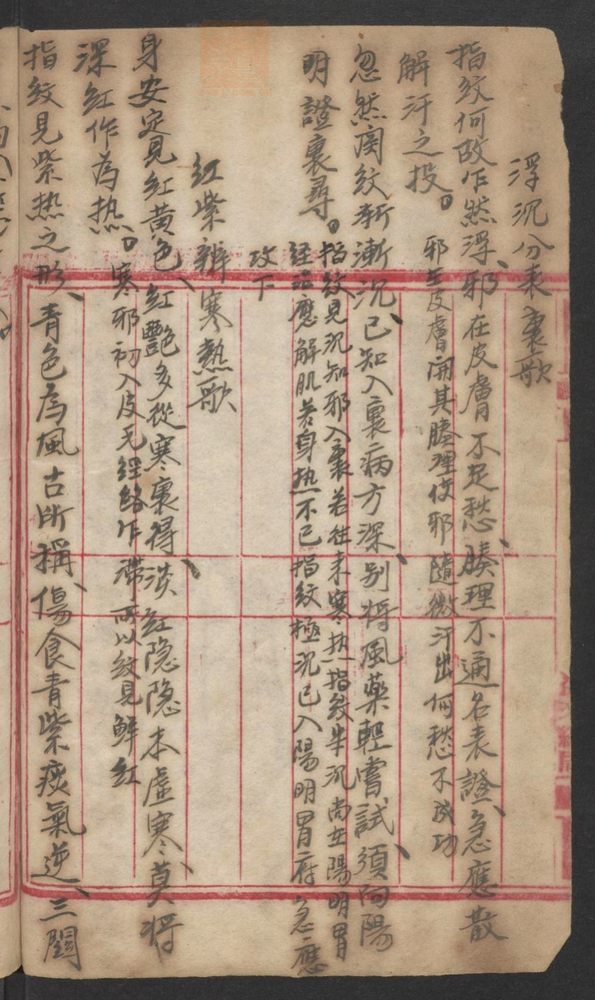 浮沉分表裏歌
指纹何故乍然浮、邪在皮膚不足愁、腠理不通名表證、急應散
解汗之投。邪在皮膚開其腠理使邪隨微汗出何愁不成功
忽然関纹漸漸沉、已知入裏病方深、别将風薬輕嘗試、須向陽
明證裏尋。指纹見沉知邪入裏若往来寒热指纹半沉尚在陽明胃
经只應解肌若身热不已指纹極沉已入陽明胃府急應
攻下
红紫辨寒熱歌
身安定見红黄色、红艷多從寒裏得、淡红隐隐本虚寒、莫将
深红作為热。寒邪初入皮毛經络乍滞所以纹見鮮红
指紋見紫热之形、青色為風古所稱、傷食青紫痰氣逆、三關